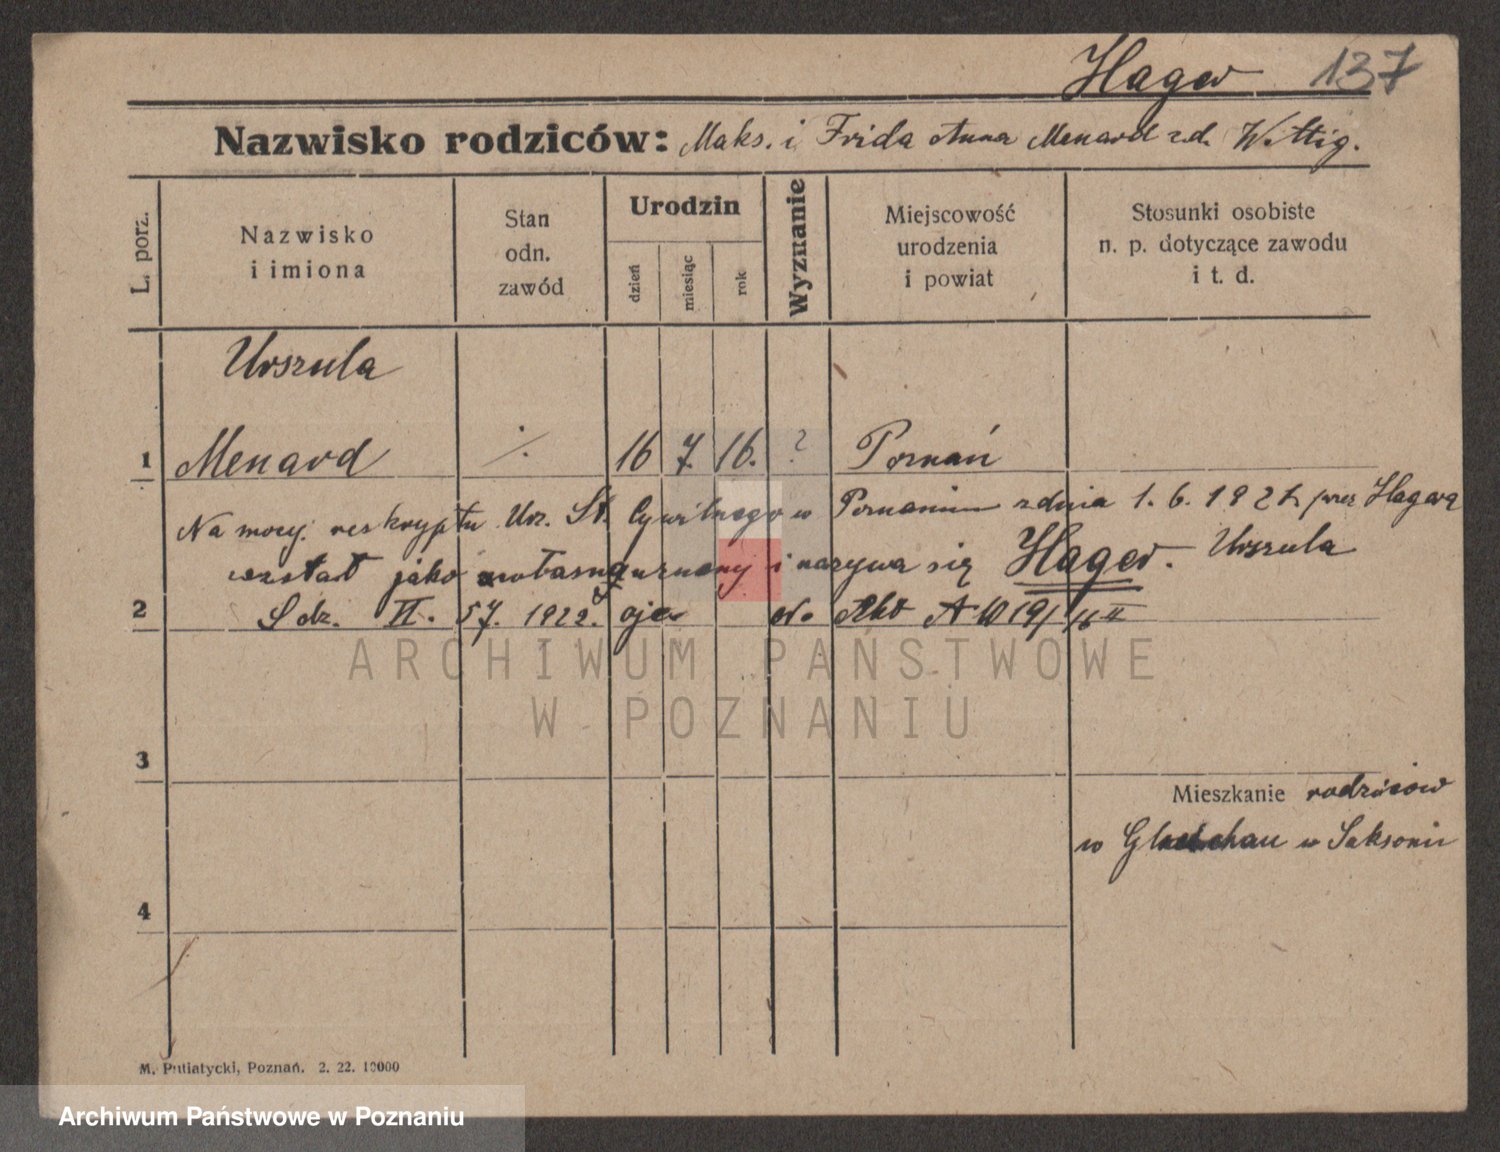 Hager 137
Nazwisko rodziców: Maks. i Frida Anna Menard z.d. Wittig.
L. porz.
Nazwisko
i imiona
Stan
odn.
zawód
Urodzin
dzień
miesiąc
rok
Wyznanie
Miejscowość
urodzenia
i powiat
Stosunki osobiste
n. p. dotyczące zawodu
i t. d.
Urszula
1 Menard ./. 16 7. 16. ? Poznań
Na mocy reskryptu Urz. St. Cywilnego w Poznaniu z dnia 1. 6. 192 przez Hagera
został jako i nazywa się Hager. Urszula
2 L dz. VI. 57. 1922. No Akt A W 19/
ARCHIWUM PAŃSTWOWE
W POZNANIU
3
Mieszkanie rodziców
w w Saksonii
4
M. Putiatycki, Poznań. 2. 22. 10000
Archiwum Państwowe w Poznaniu